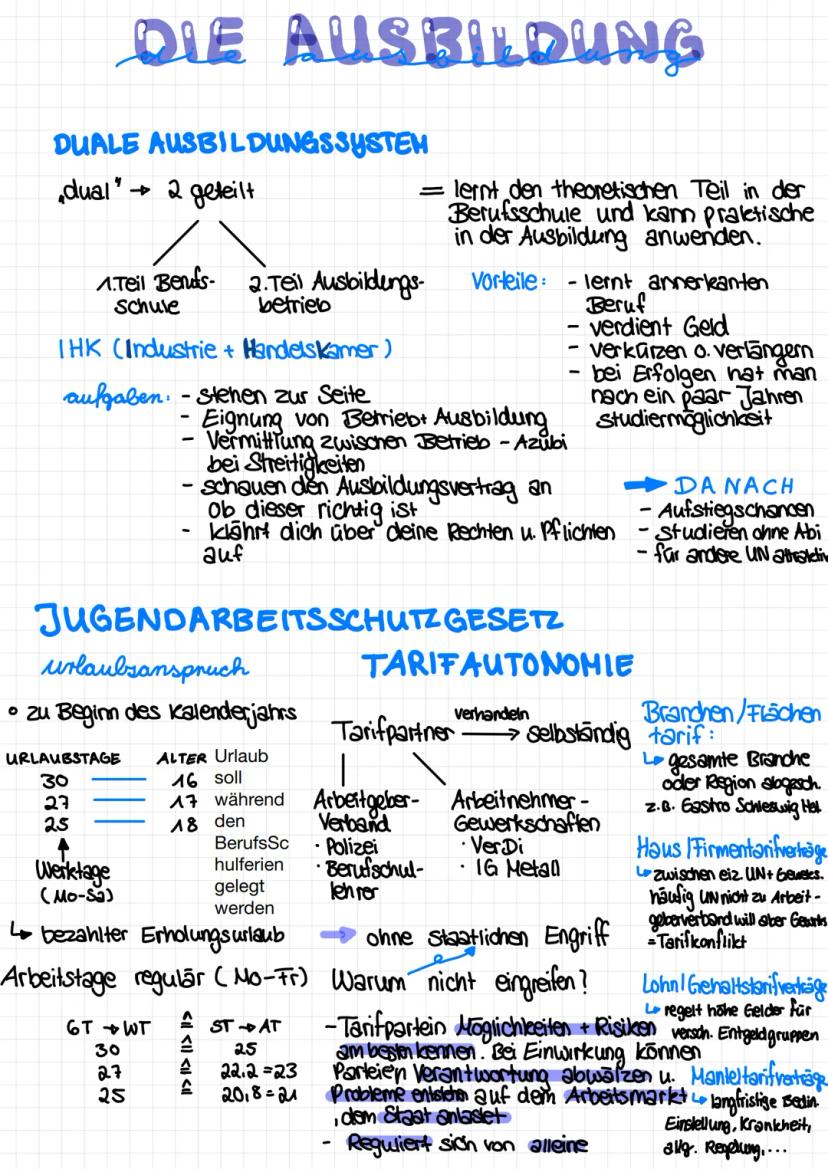 DIE AUSBILDUNG
die ausbildung
DUALE AUSBILDUNGSSYSTEM
„dual" → 2 geteilt
1.Teil Berufs-
schule
2.Teil Ausbildungs-
betrieb
= lernt den theoretischen Teil in der
Berufsschule und kann praktische
in der Ausbildung anwenden.
Vorteile: - lernt annerkanten
Beruf
- verdient Geld
- verkürzen o. verlängern
- bei Erfolgen hat man
nach ein paar Jahren
studiermöglichkeit
IHK (Industrie + Handelskamer)
aufgaben: - stehen zur Seite
- Eignung von Betrieb+ Ausbildung
- Vermittlung zwischen Betrieb - Azubi
bei Streitigkeiten
- schauen den Ausbildungsvertrag an
ob dieser richtig ist
- klährt dich über deine Rechten u. Pflichten
auf
→ DANACH
- Aufstiegschancen
- studieren ohne Abi
- für andere UN attraktiv
JUGENDARBEITSSCHUTZGESETZ
urlaubsanspruch
° zu Beginn des Kalenderjahrs
URLAUBSTAGE ALTER
30 — 16
27 — 17
25 — 18
↑
Werktage
(Mo-Sa)
Urlaub
soll
während
den
BerufsSc
hulferien
gelegt
werden
↳ bezahlter Erholungsurlaub
Arbeitstage regulär (Mo-Fr)
GT → WT ≙ ST → AT
30 ≙ 25
27 ≙ 22,2 = 23
25 ≙ 20,8 = 21
TARIFAUTONOMIE
Tarifpartner verhandeln → selbständig
Arbeitgeber-
Verband
· Polizei
· Berufschul-
lehrer
Arbeitnehmer-
Gewerkschaften
· VerDi
· IG Metall
→ ohne staatlichen Engriff
Warum nicht eingreifen?
- Tarifpartein Möglichkeiten + Risiken
am besten kennen. Bei Einwirkung können
Parteien Verantwortung abwälzen u.
Probleme entstehn auf dem Arbeitsmarkt
, dem Staat anlastet
- Reguliert sich von alleine
Branchen/Flächen
tarif:
↳ gesamte Branche
oder Region abgesch.
z.B. Gastro Schleswig Hol.
Haus/Firmentarifverträge
↳ zwischen eiz. UN + Gewks.
häufig UN nicht zu Arbeit-
geberverband will aber Gewrks
= Tarifkonflikt
Lohn/Gehaltstarifverträge
↳ regelt höhe Gelder für
versch. Entgeldgruppen
Manteltarifverträge
↳ langfristige Bedin.
Einstellung, Krankheit,
allg. Regelung,...